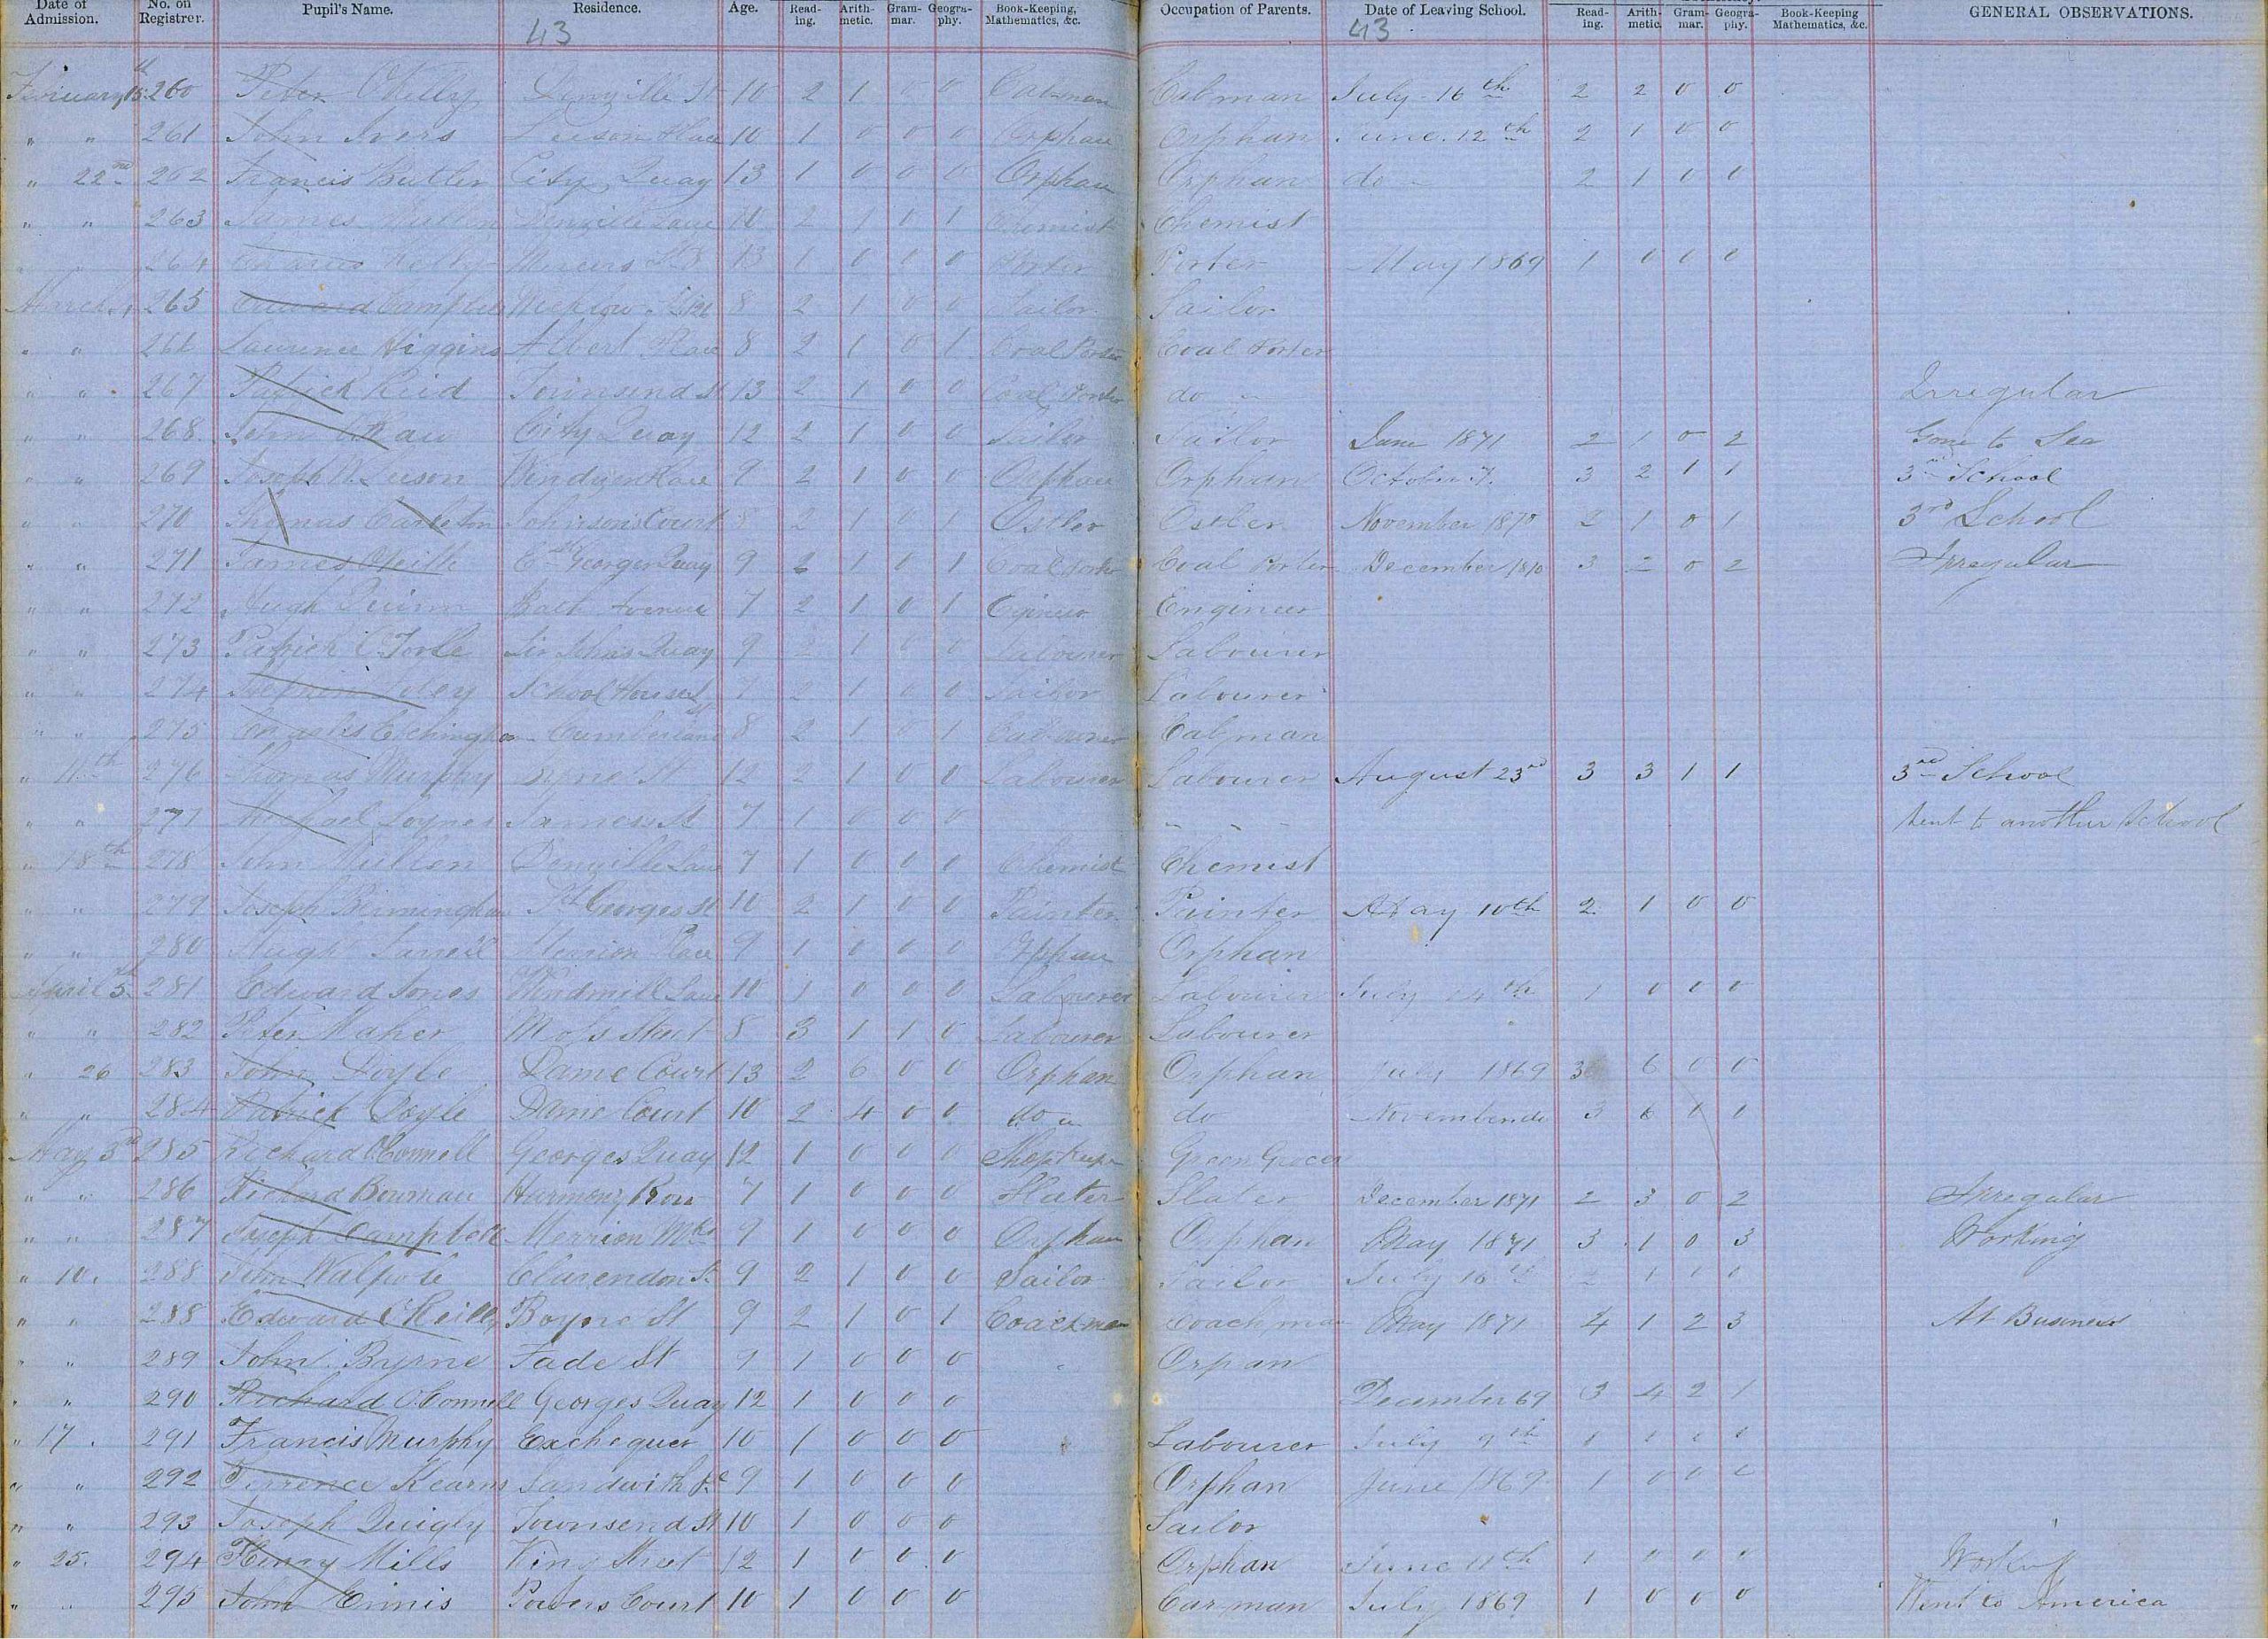 Date of Admission. No. on Registrer. Pupil's Name. Residence. Age. Read-ing. Arith-metic. Gram-mar. Geogra-phy. Book-Keeping, Mathematics, &c. Occupation of Parents. Date of Leaving School. Read-ing. Arith-metic. Gram-mar. Geogra-phy. Book-Keeping Mathematics, &c. GENERAL OBSERVATIONS.
43 43
February 15th 260 Peter OKelly Denzille St 10 2 1 0 0 Cabman Cabman July 16th 2 2 0 0
" " 261 John Ivers Leeson Place 10 1 0 0 0 Orphan Orphan June 12th 2 1 0 0
" 22nd 262 Francis Butler City Quay 13 1 0 0 0 Orphan Orphan do 2 1 0 0
" " 263 James Mullen Denzille Lane 10 2 1 0 1 Chemist Chemist
264 Charles Kelly Mercers St 13 1 0 0 0 Porter Porter May 1869 1 0 0 0
March 1 265 Edward Campbell Wicklow 8 2 1 0 0 Sailor Sailor
" " 266 Laurence Higgins Albert Place 8 2 1 0 1 Coal Porter Coal Porter
" " 267 Patrick Reid Townsend St 13 2 1 0 0 Coal Porter do Irregular
" " 268 John City Quay 12 2 1 0 0 Sailor Sailor June 1871 2 1 0 2 Gone to Sea
" " 269 Joseph N. Leeson Place 9 2 1 0 0 Orphan Orphan October 7. 3 2 1 1 3rd School
" " 270 Thomas Carleton Johnsons Court 8 2 1 0 1 Ostler Ostler November 1870 2 1 0 1 3rd School
" " 271 James ONeill Et Georges Quay 9 2 1 0 1 Coal Porter Coal Porter December 1870 3 2 0 2 Irregular
" " 272 Hugh Quinn Bath Avenue 7 2 1 0 1 Engineer Engineer
" " 273 Patrick OToole Sir Johns Quay 9 2 1 0 0 Labourer Labourer
" " 274 Stephen Foley School House St 7 2 1 0 0 Sailor Labourer
" " 275 Charles Echingham Cumberland St 8 2 1 0 1 Cabman
" 11th 276 Thomas Murphy Boyne St 12 2 1 0 0 Labourer Labourer August 23rd 3 3 1 1 3rd School
" " 277 Michael Joynes James St 7 1 0 0 0 - - - Sent to another School
" 18th 278 John Mullen Denzille Lane 7 1 0 0 0 Chemist Chemist
" " 279 Joseph Birmingham Gt Georges St 10 2 1 0 0 Painter Painter May 10th 2 1 0 0
" " 280 Hugh Merrion Place 9 1 0 0 0 Orphan Orphan
April 5th 281 Edward Jones Windmill Lane 10 1 0 0 0 Labourer Labourer July 14th 1 0 0 0
" " 282 Peter Maher Moss Street 8 3 1 1 0 Labourer Labourer
" 26 283 John Doyle Dame Court 13 2 6 0 0 Orphan Orphan July 1869 3 6 0 0
" " 284 Patrick Doyle Dame Court 10 2 4 0 0 do do November do 3 6 0 0
May 3rd 285 Richard OConnell Georges Quay 12 1 0 0 0 Shop Keeper Green Grocer
" " 286 Richard Bowman Harmony Row 7 1 0 0 0 Slater Slater December 1871 2 3 0 2 Irregular
" " 287 Joseph Campbell Merrion Mks 9 1 0 0 0 Orphan Orphan May 1871 3 1 0 3 Working
" 10. 288 John Walpole Clarendon St 9 2 1 0 0 Sailor Sailor July 16th 2 1 0 0
" " 288 Edward OReilly Boyne St 9 2 1 0 1 Coachman Coachman May 1871 4 1 2 3 At Business
" " 289 John Byrne Fade St 9 1 0 0 0 Orpan
" " 290 Richard OConnell Georges Quay 12 1 0 0 0 December 69 3 4 2 1
" 17. 291 Francis Murphy Exchequer 10 1 0 0 0 Labourer July 9th 1 1 1 1
" " 292 Terrence Kearns Sandwith St 9 1 0 0 0 Orphan June 1869 1 0 0 0
" " 293 Joseph Quigly Townsend St 10 1 0 0 0 Sailor
" 25. 294 Henry Mills King Street 12 1 0 0 0 Orphan June 11th 1 0 0 0 Working
" " 295 John Ennis Powers Court 10 1 0 0 0 Carman July 1869 1 0 0 0 Went to America